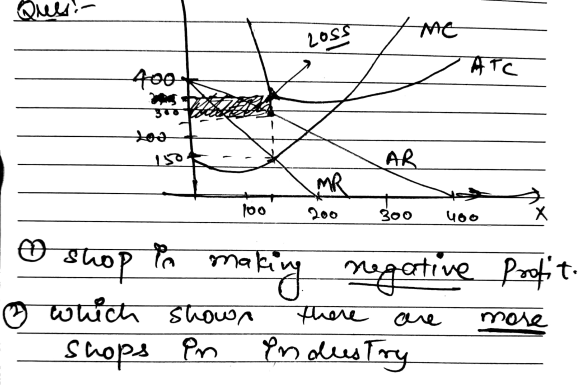 Ques:-
LOSS
MC
ATC
400
300
200
150
AR
MR
100 200 300 400 X
① shop is making negative Profit.
② which shows there are more
shops in industry